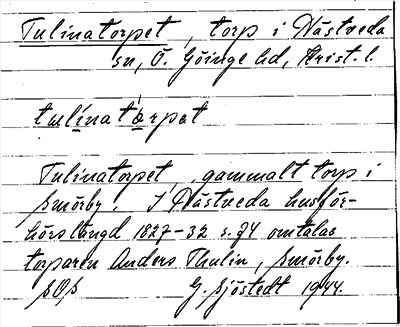 Tulinatorpet, torp i Nästveda
sn, Ö. Göinge hd, Krist. l.
tulinatorpet
Tulinatorpet, gammalt torp i
Smörby. I Nästveda husför-
hörslängd 1827-32 s. 74 omtalas
torparen Anders Thulin, Smörby.
G. Sjöstedt 1944.